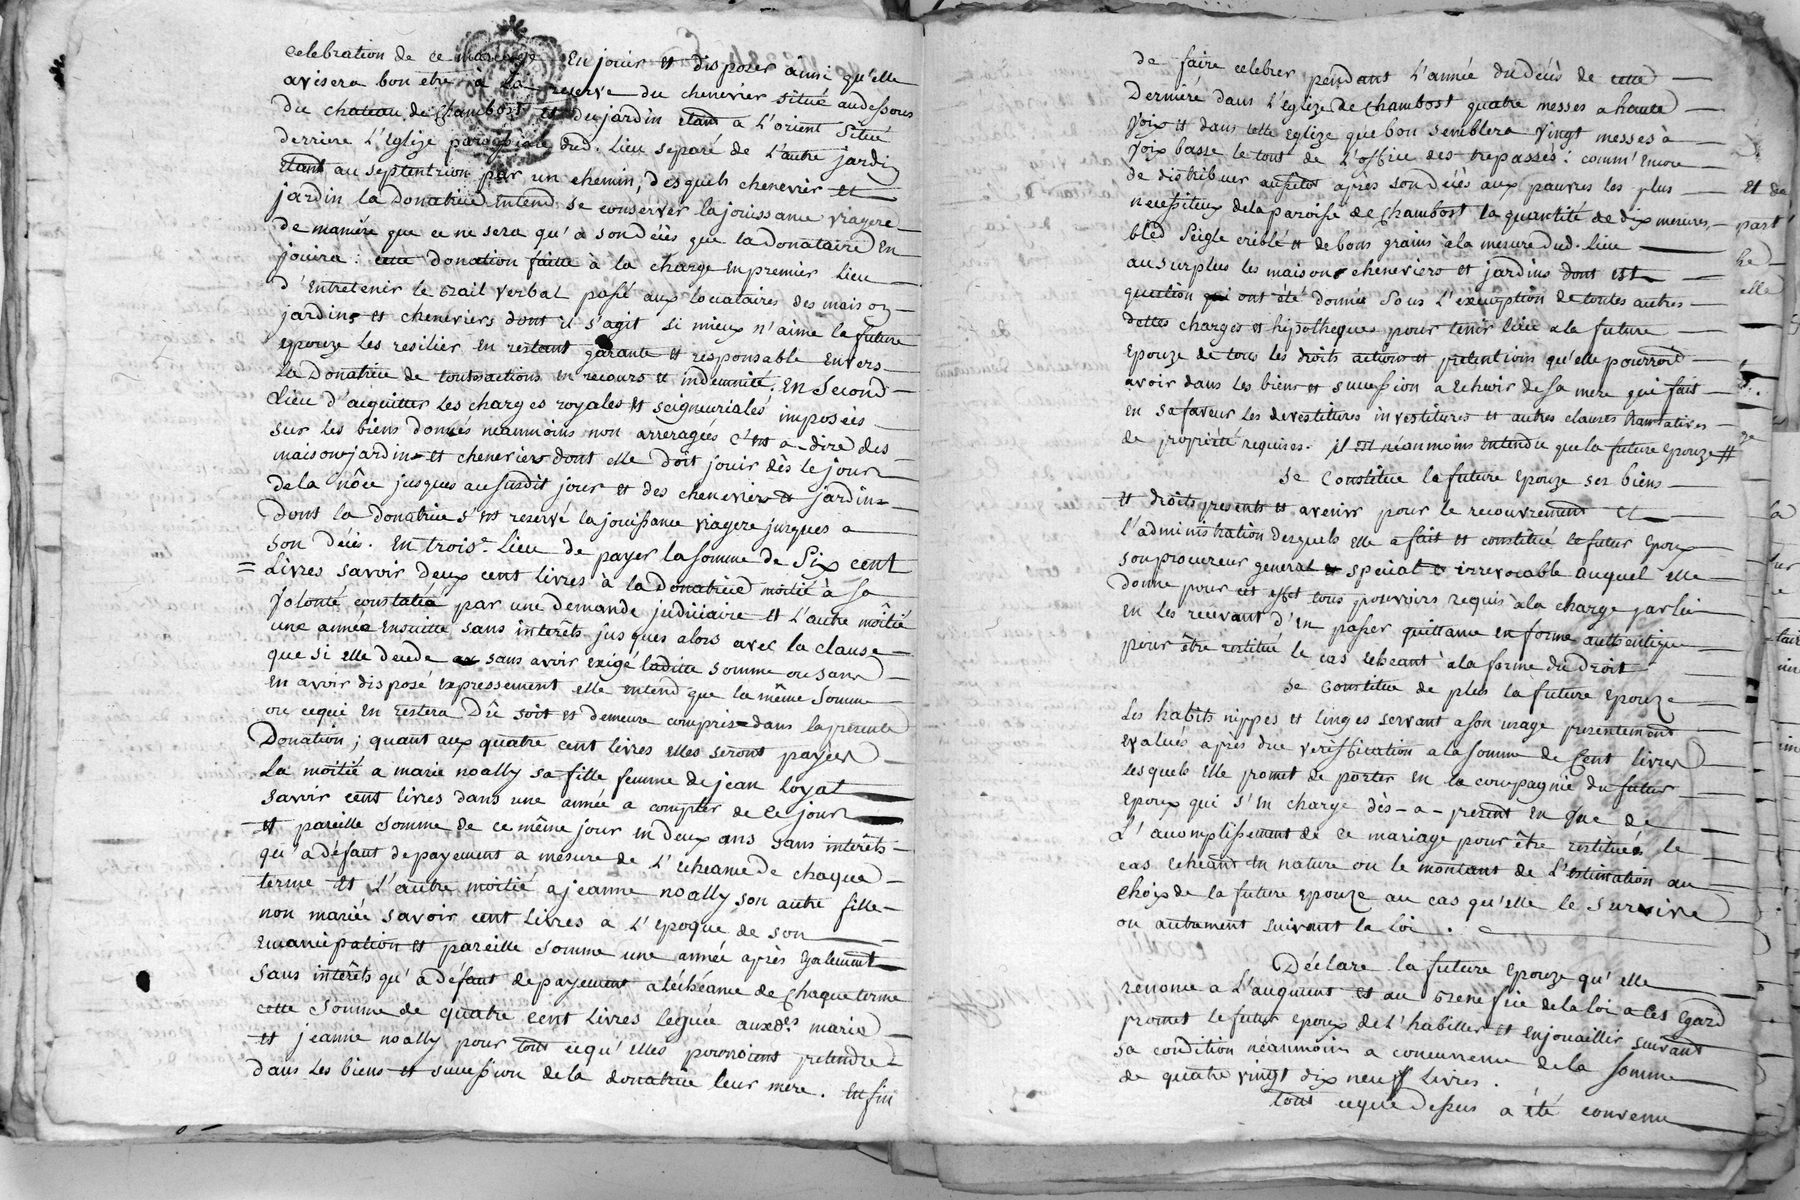 celebration de ce mariage En jouir et disposer ainsi qu'elle
avisera bon etre à La reserve du chenevier situé audessous
du chateau de Chambost et du jardin etant a L'orient Situé
derriere L'Eglize paroissiale dud. Lieu separé de L'autre jardin
Etant au septentrion par un chemin, desquels chenevier et
jardin la Donatrice Entend se conserver la jouissance viagere
de maniére que ce ne sera qu'a son décès que la Donataire En
jouira : cette donation faitte à la charge En premier Lieu
d'Entretenir le Bail verbal passé aux locataires des maison
jardins et cheneviers dont il s'agit si mieux n'aime la future
epouze les resilier En restant garante et responsable Envers
La Donatrice de touttes actions en recours et indemnité ; En Second
Lieu d'acquitter Les charges royales et seigneuriales imposées
sur les biens donnés neanmoins non arreragées C'est a-dire des
maison jardins et cheneviers dont elle doit jouir dès le jour
de la nôce jusques au susdit jour et des cheneviers et jardin
dont la donatrice s'est reservé la jouissance viagere jusques a
son décès. En trois.e Lieu de payer la somme de Six cent
= Livres savoir deux cent livres à la donatrice moitié à sa
Volonté constatée par une demande judiciaire et L'autre môitié
une année ensuitte sans interêts jusques alors avec la clause
que si elle decede sans avoir exigé laditte somme ou sans
En avoir disposé expressement elle entend que la même somme
ou cequi en restera Dû soit et demeure comprise dans la presente
Donation ; quant aux quatre cent livres elles seront payées
La moitié a marie noally sa fille femme de jean Loyat
savoir cent livres dans une année a compter de ce jour
et pareille somme de ce même jour en deux ans sans interêts
qu'a défaut de payement a mésure de L'echeance de chaque
terme et L'autre moitié a jeanne noally son autre fille
non mariée savoir cent Livres a L'Epoque de son
Emancipation et pareille somme une année après Egalement
sans interêts qu'a défaut de payement a léchéance de chaque terme
cette somme de quatre cent Livres leguée auxd.s marie
et jeanne noally pour tout cequ'elles pourroient pretendre
dans les biens et succession de la donatrice leur mere. Enfin
de faire celebrer pendant L'année du décès de cette
Derniére dans L'eglize de Chambost quatre messes a haute
Voix et dans telle Eglize que bon semblera Vingt messes à
Voix basse le tout de L'office des trepassés : comm'Encore
de distribuer aussitot après son décès aux pauvres les plus
necessiteux de la paroisse de Chambost la quantité de dix mesures
bled Seigle criblé et de bons grains à la mesure dud. Lieu
au surplus les maison cheneviers et jardins dont est
question ont été donnés Sous L'exemption de toutes autres
dettes charges et hipotheques pour tenir lieu a la future
Epouze de tous les droits actions et pretentions qu'elle pourroit
avoir dans les biens et succession a Echeoir de sa mere qui fait
en sa faveur les devestitures investitures et autres clauses translatives
de propriété requises. il est néanmoins Entendu que la future Epouze #
Se Constitue la future Epouze ses biens
et droits presents et avenir pour le recouvrement et
l'administration desquels Elle a fait et constitué le futur Epoux
son procureur general et special et irrevocable auquel elle
donne pour cet effet tous pouvoirs requis à la charge par lui
en les recevant d'en passer quittance en forme authentique
pour être restitué le cas Echeant à la forme du Droit
Se Constitue de plus la future Epouze
Les habits nippes et linges servant a son usage presentement
Evalués après due verification a la somme de Cent livres
Lesquels Elle promet de porter En la compagnie du futur
Epoux qui s'en charge dès-a-present En vue de
L'acomplissement de ce mariage pour être restitués le
cas Echeant En nature ou le montant de L'estimation au
Choix de la future Epouze au cas qu'elle le survive
ou autrement suivant la Loi.
Déclare la future Epouze qu'elle
renonce a L'augment et au Benefice de la loi a cet Egard
promet le futur Epoux de L'habiller et enjouaillir suivant
sa condition néanmoins a concurrence de la somme
de quatre vingt dix neuf Livres.
Tout ceque dessus a été convenu
et de
part
he
elle